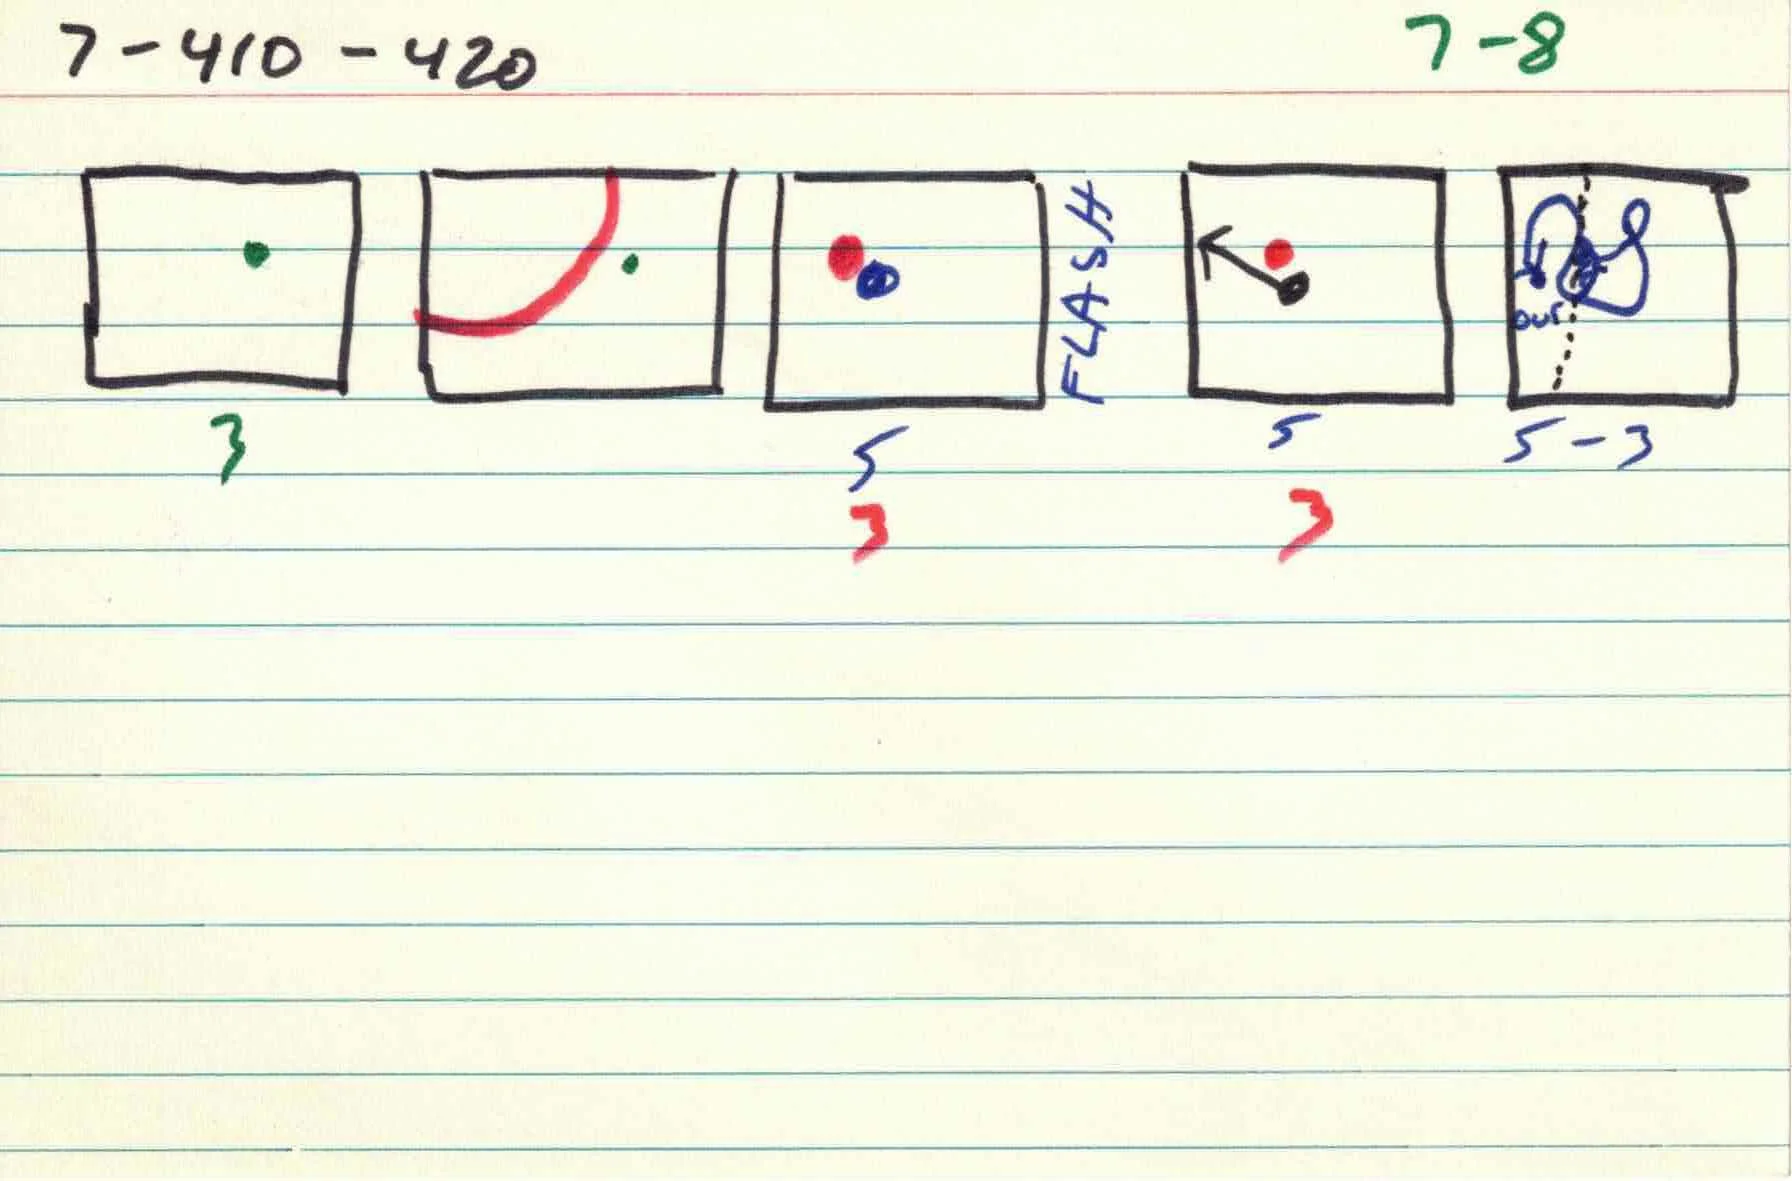 7-410-420 7-8
FLASH
our
3 5 5 5-3
3 3